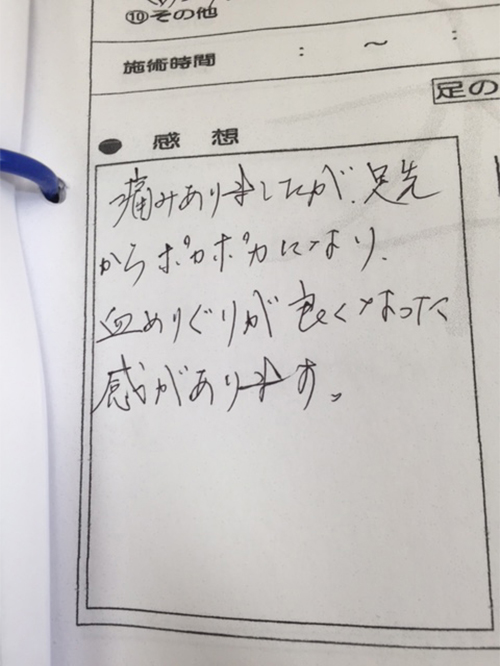 ⑩その他
施術時間 : ～ :
足の
● 感想
痛みありましたが、足先
からポカポカになり、
血めぐりが良くなった
感があります。